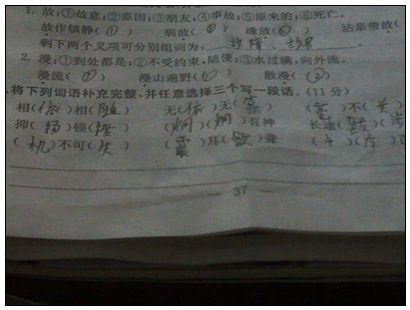 1. 故:①故意;②原因;③朋友;④事故;⑤原来的;⑥死亡。
故作镇静(①) 病故( ) 缘故(②) 沾亲带故(
剩下两个义项可分别组词为: 故障、故居。
2. 漫:①到处都是;②不受约束,随便;③水过满,向外流。
漫流( ) 漫山遍野( ) 散漫(②)
.将下列词语补充完整,并任意选择三个写一段话。(11分)
相(依)相(随) 无(依)无(靠) ( )不(关)
抑(扬)顿(挫) (炯)(炯)有神 长途( )(
(机)不可(失) (震)耳(欲)聋 (千)(方)百
37